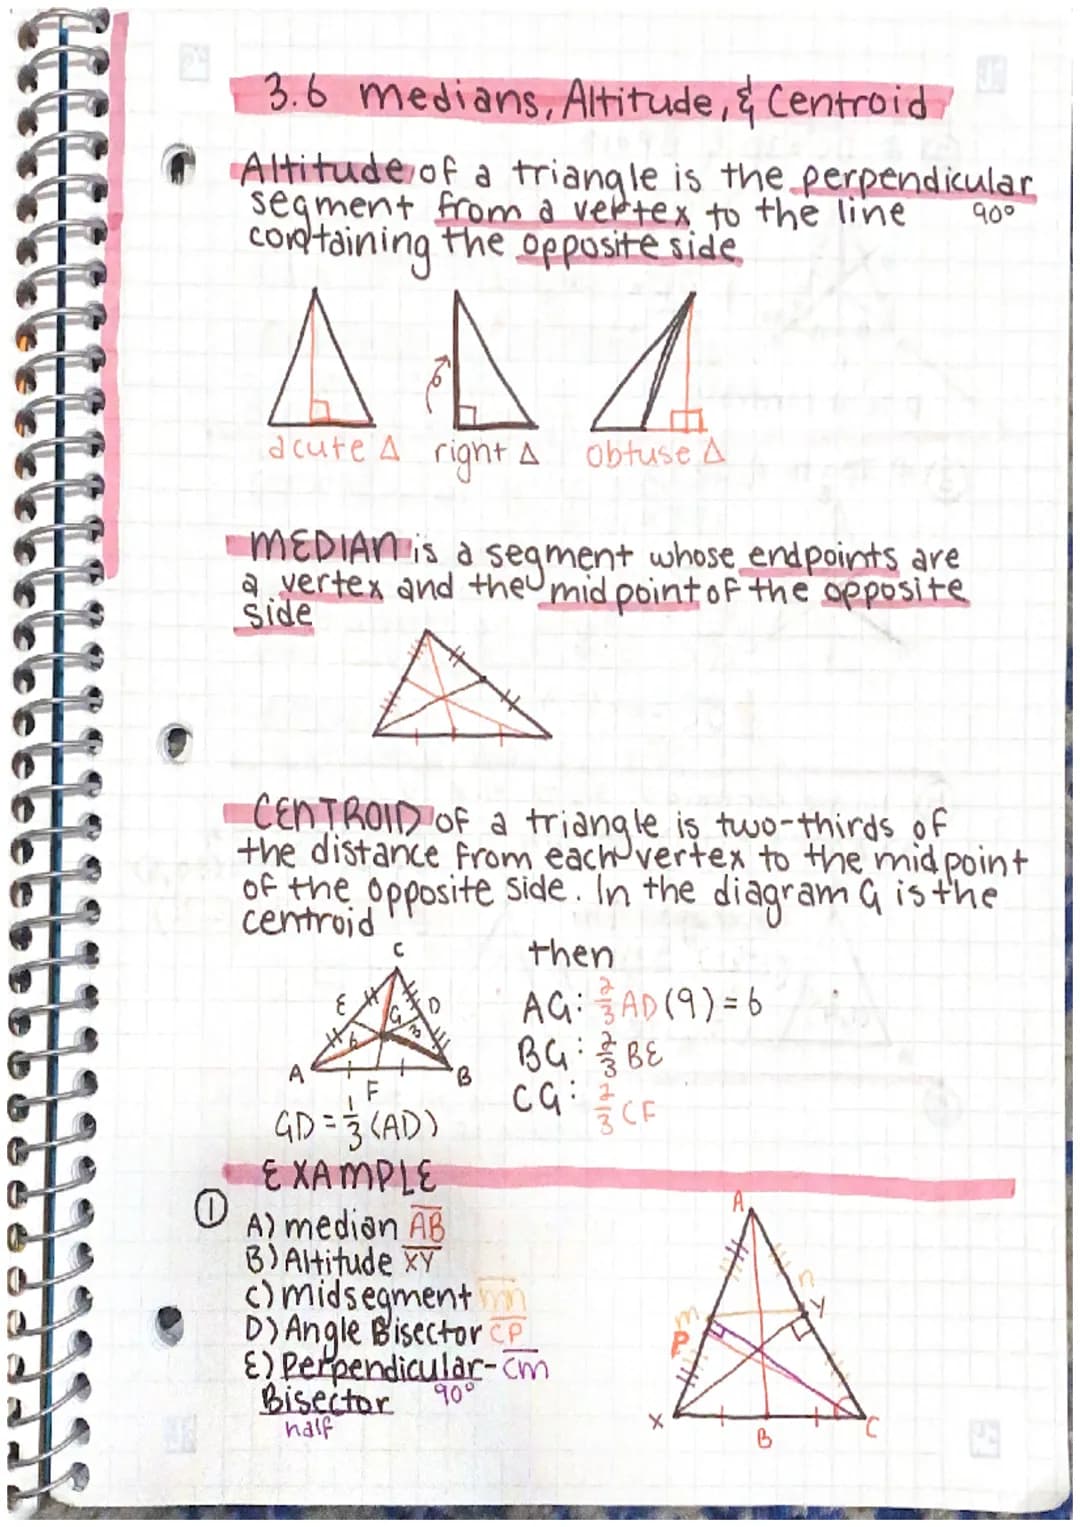 3.6 medians, Altitude, & Centroid
Altitude of a triangle is the perpendicular
segment from a vertex to the line 90°
containing the opposite side
acute Δ right Δ obtuse Δ
MEDIAN is a segment whose endpoints are
a vertex and the midpoint of the opposite
side
CENTROID of a triangle is two-thirds of
the distance from each vertex to the midpoint
of the opposite side. In the diagram G is the
centroid
C
E D
G
6 3
A B
F
GD = 1/3 (AD)
then
AG: 2/3 AD (9) = 6
BG: 2/3 BE
CG: 2/3 CF
EXAMPLE
① A) median AB
B) Altitude XY
C) midsegment mn
D) Angle Bisector CP
E) Perpendicular- Cm
Bisector 90°
half
A
n
m Y
P
X C
B